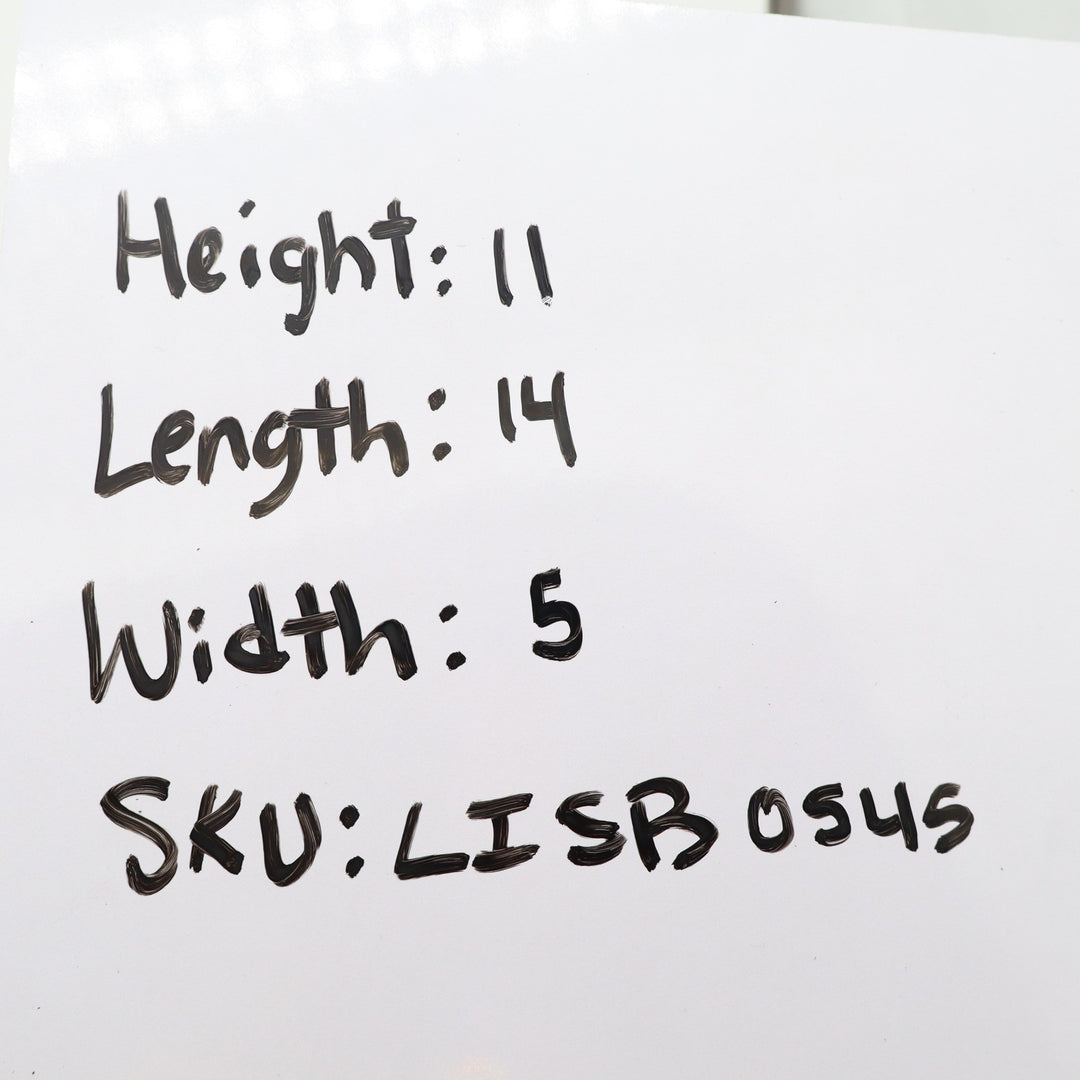 Height: 11
Length: 14
Width: 5
SKU: LISB 0545